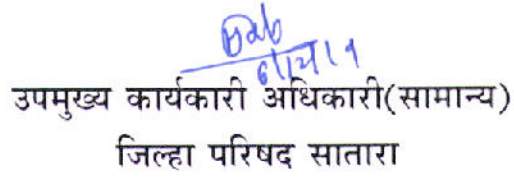 उपमुख्य कार्यकारी अधिकारी(सामान्य)
जिल्हा परिषद सातारा